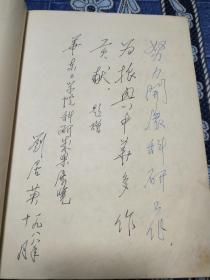 努力开展科研工作
为振兴中华多作
贡献．题赠
华东工学院科研成果展览
刘居英